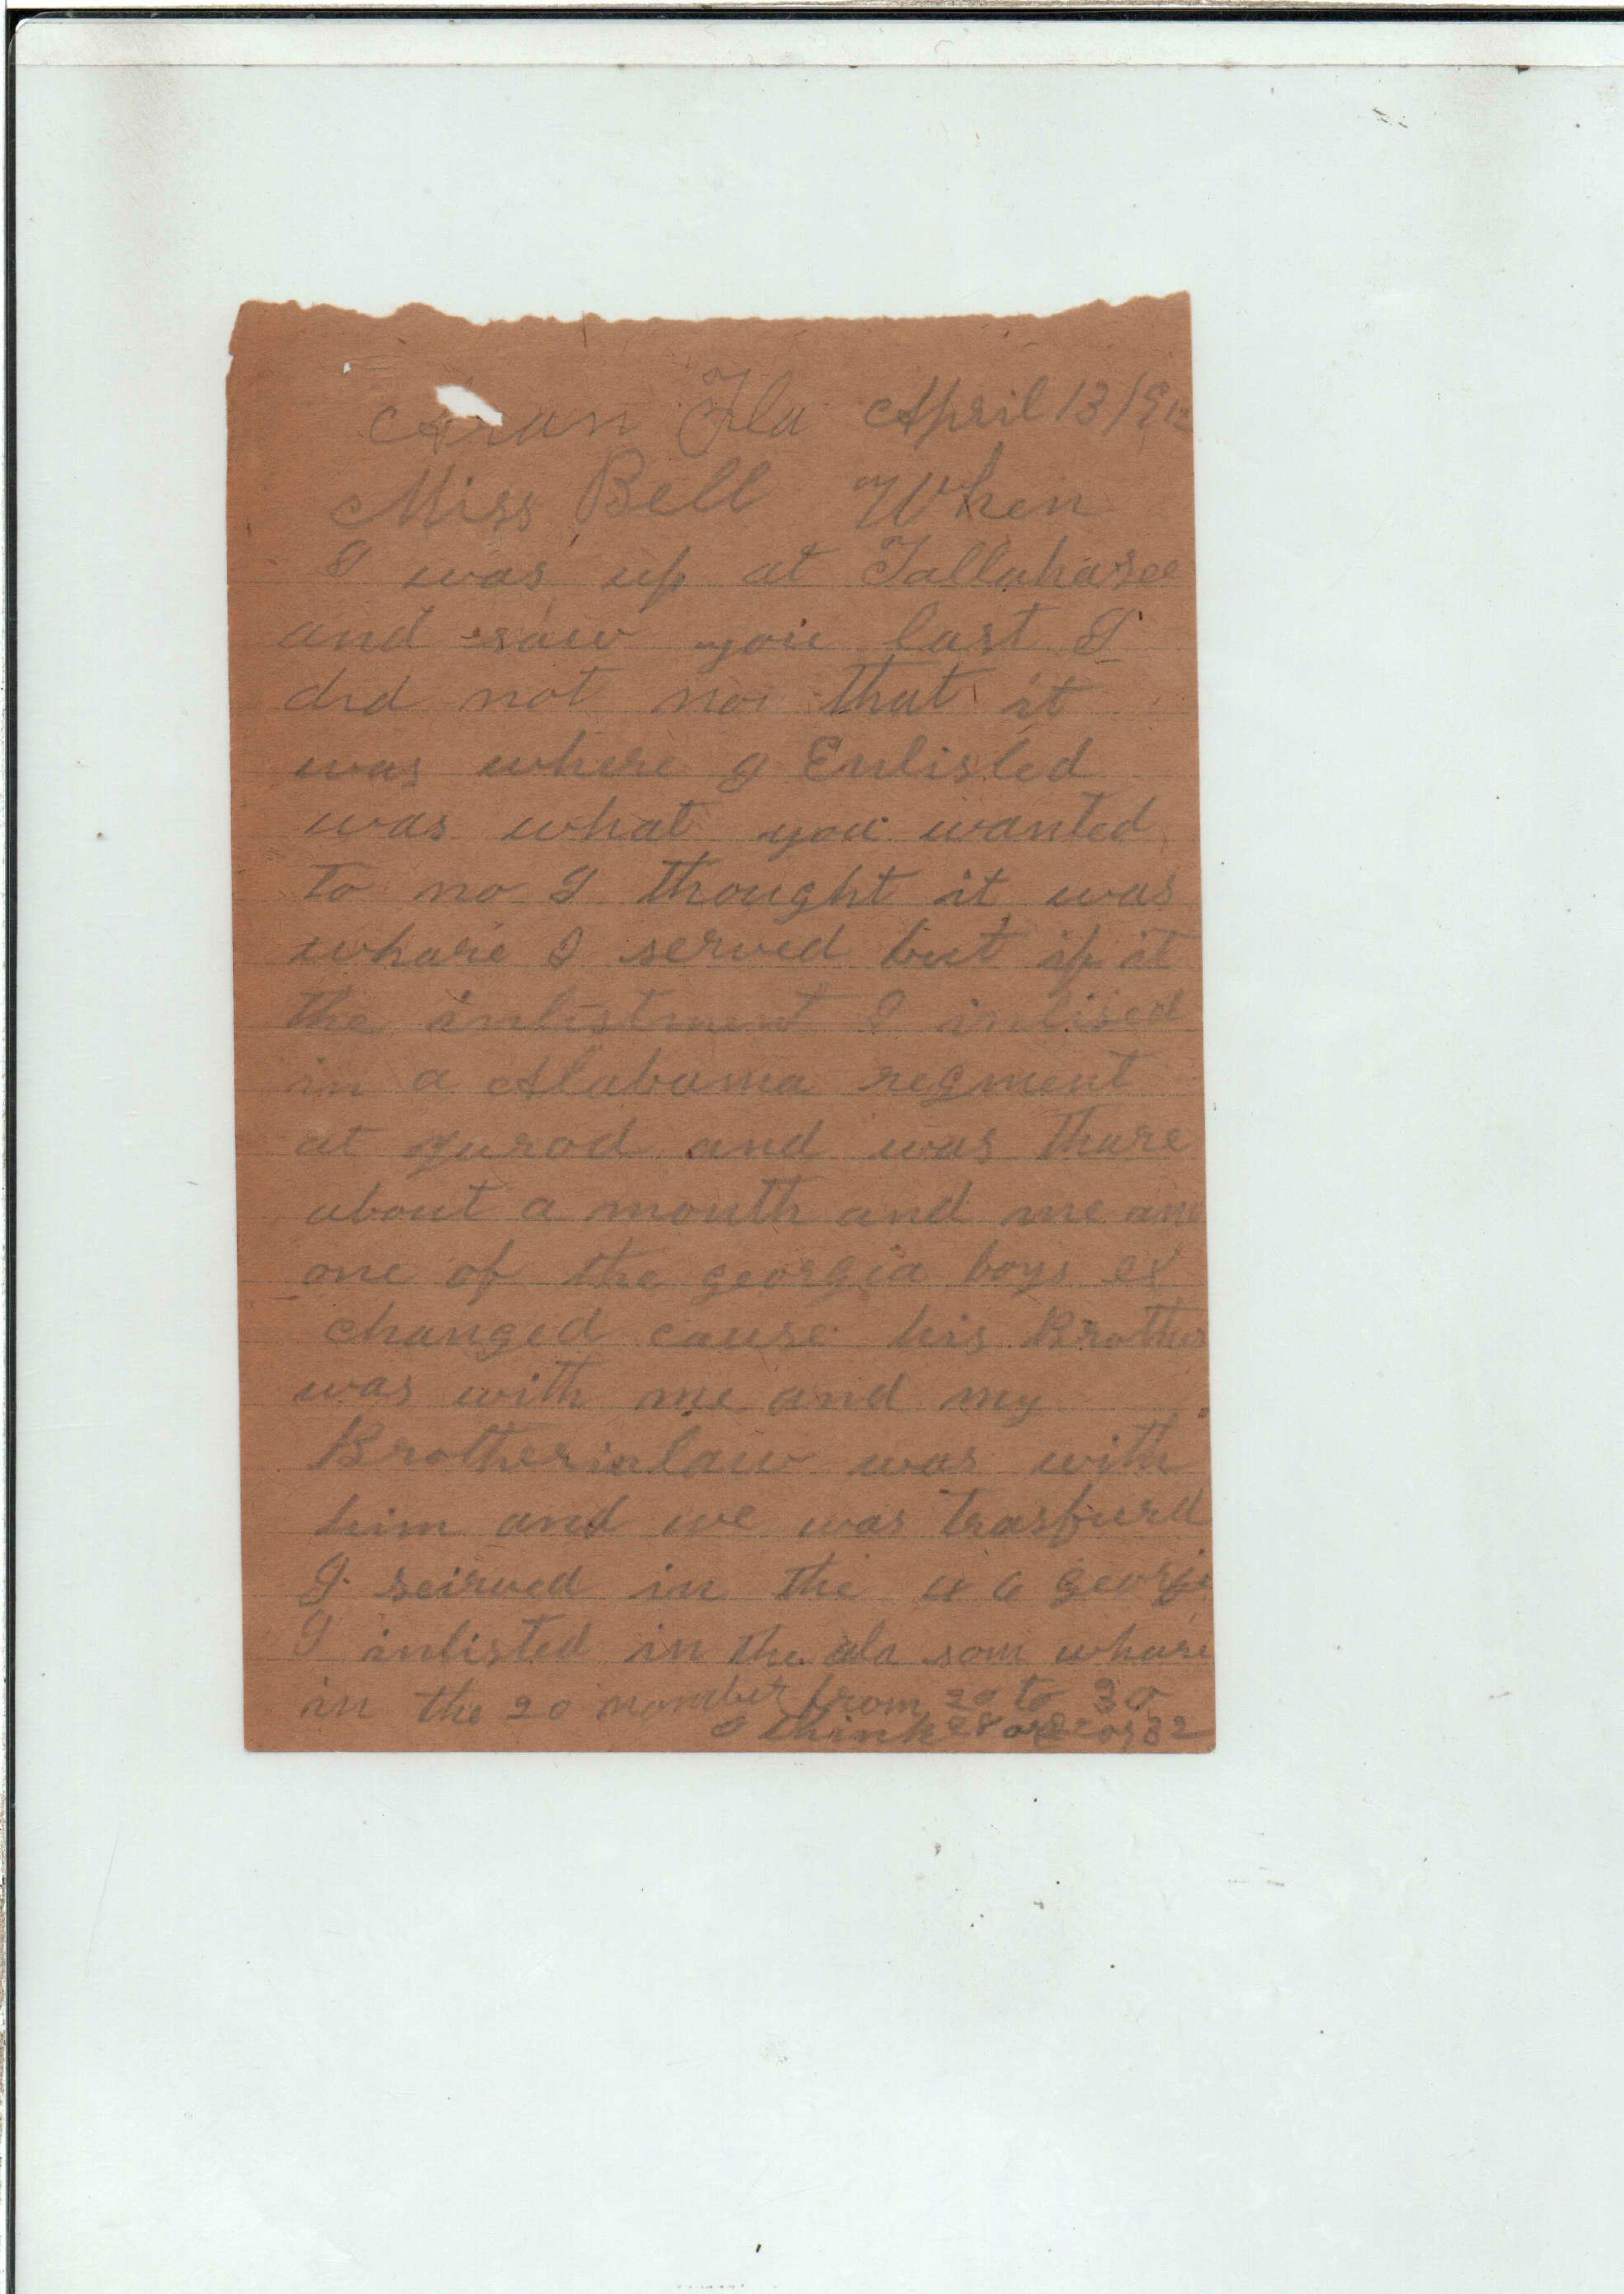 Fla April 13/
Miss Bell When
I was up at Tallahasee
and saw you last I
did not no that it
was where I Enlisted
was what you wanted
to no I thought it was
whare I served but if it
the inlistment I inlised
in a Alabama regment
at and was thare
about a month and me an
one of the georgia boys ex
changed cause his Brother
was with me and my
Brotherinlaw was with
him and we was trasfurd
I seirved in the georgi
I inlisted in the ala som whare
in the 20 nomber from 20 to 30
I think 28 or 32